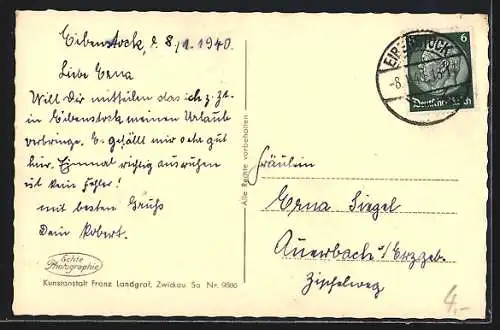 Eibenstock, d. 8/1. 1940.
Liebe Erna
Will Dir mitteilen das ich z. Zt.
in Eibenstock meinen Urlaub
verbringe. Es gefällt mir sehr gut
hier. Einmal richtig ausruhen
ist kein Fehler!
mit besten Gruß
Dein Robert.
Echte
Photographie
Kunstanstalt Franz Landgraf, Zwickau Sa Nr. 9886
Alle Rechte vorbehalten
EIBENSTOCK
-8.
6
Deutsches Reich
Fräulein
Erna Siegel
Auerbach i/Erzgeb.
Zipfelweg
4.-